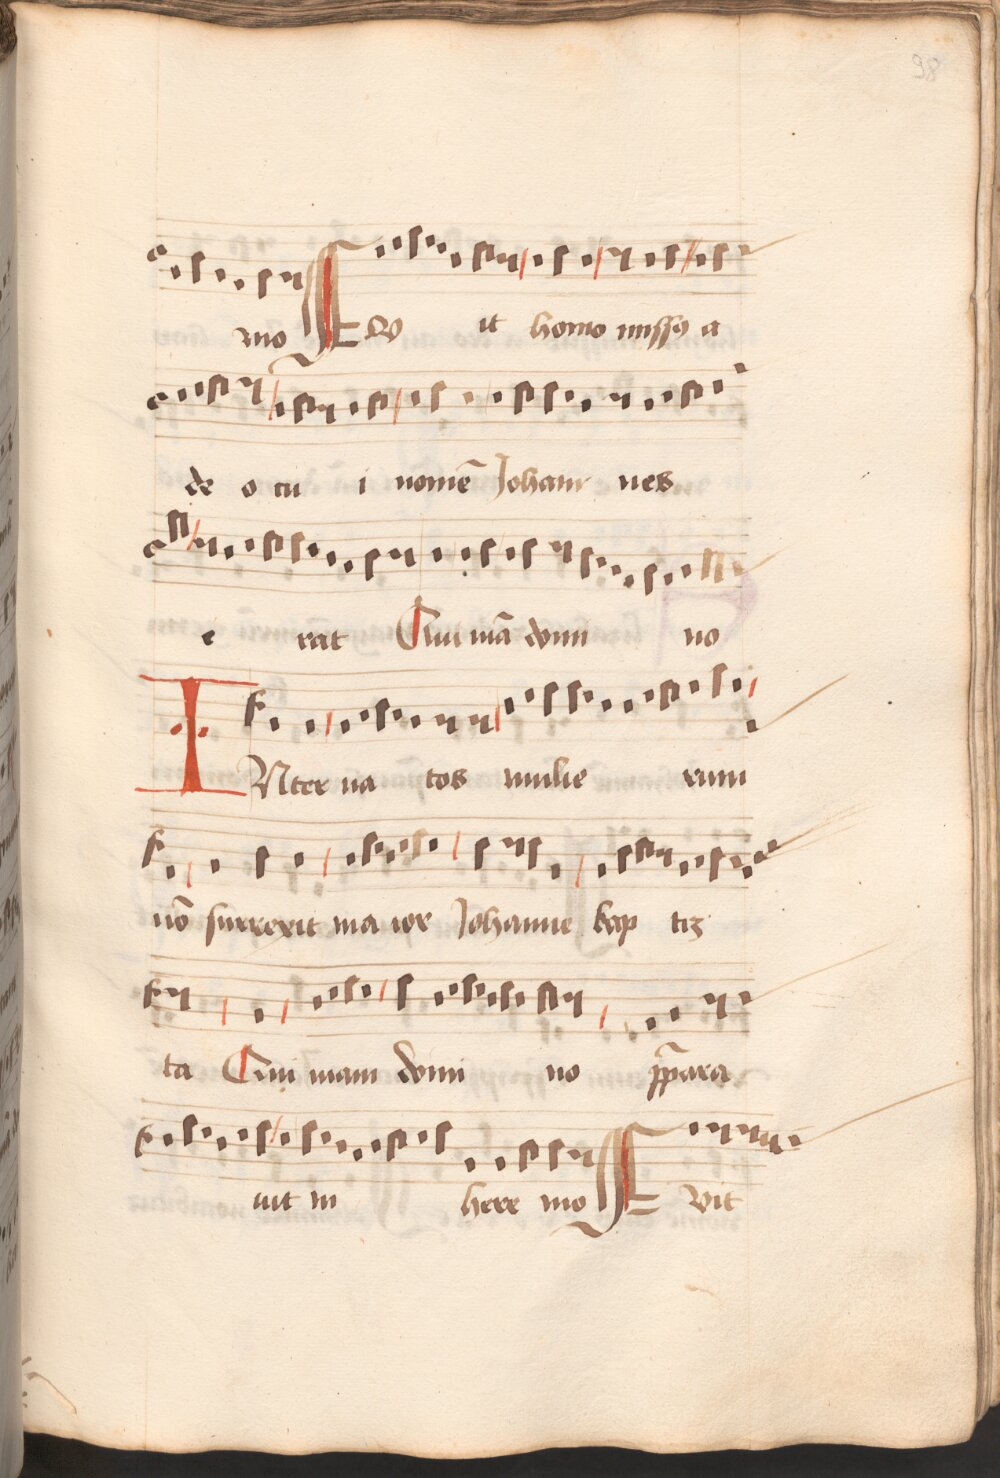 98
mo Fu it homo missꝯ a
de o cu i nomē Johan nes
e rat Qui mā domi no
INter na tos mulie rum
nō surrexit ma ior Johanne bap tiz
ta Qui mam domi no p̄para
uit in here mo F vit